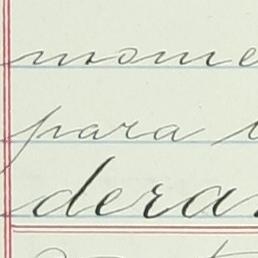 mome
para
dera